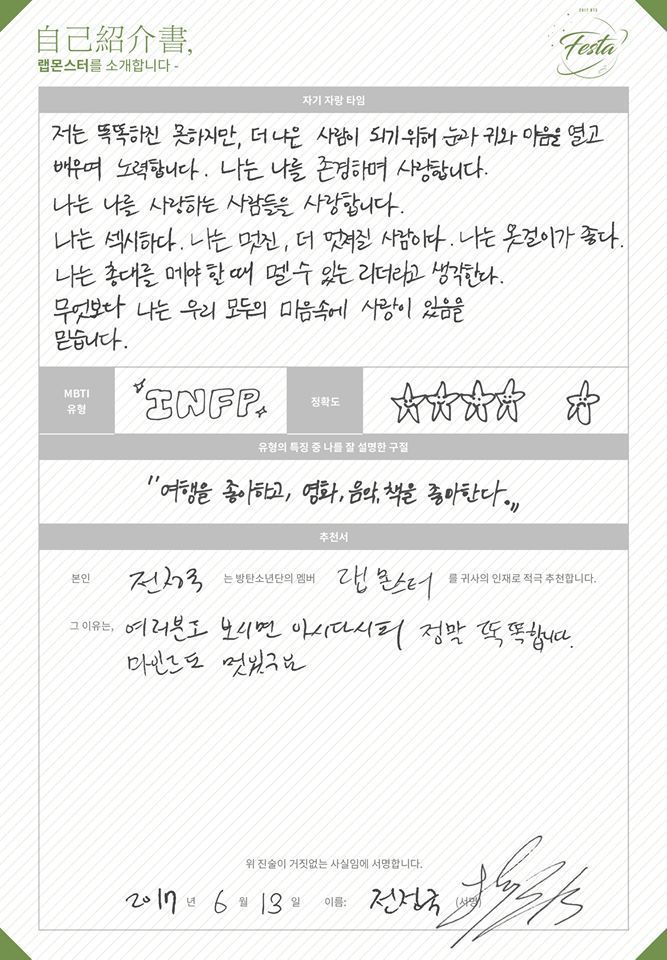 自己紹介書,
랩몬스터를 소개합니다 -
2017 BTS
Festa
자기 자랑 타임
저는 똑똑하진 못하지만, 더 나은 사람이 되기 위해 눈과 귀와 마음을 열고
배우며 노력합니다. 나는 나를 존경하며 사랑합니다.
나는 나를 사랑하는 사람들을 사랑합니다.
나는 섹시하다. 나는 멋진, 더 멋져질 사람이다. 나는 옷걸이가 좋다.
나는 총대를 메야 할 때 멜 수 있는 리더라고 생각한다.
무엇보다 나는 우리 모두의 마음속에 사랑이 있음을
믿습니다.
MBTI
유형
INFP
정확도
유형의 특징 중 나를 잘 설명한 구절
"여행을 좋아하고, 영화, 음악, 책을 좋아한다."
추천서
본인 전정국 는 방탄소년단의 멤버 랩몬스터 를 귀사의 인재로 적극 추천합니다.
그 이유는, 여러분도 보시면 아시다시피 정말 똑똑합니다.
마인드도 멋있구요
위 진술이 거짓없는 사실임에 서명합니다.
2017 년 6 월 13 일 이름: 전정국 (서명)